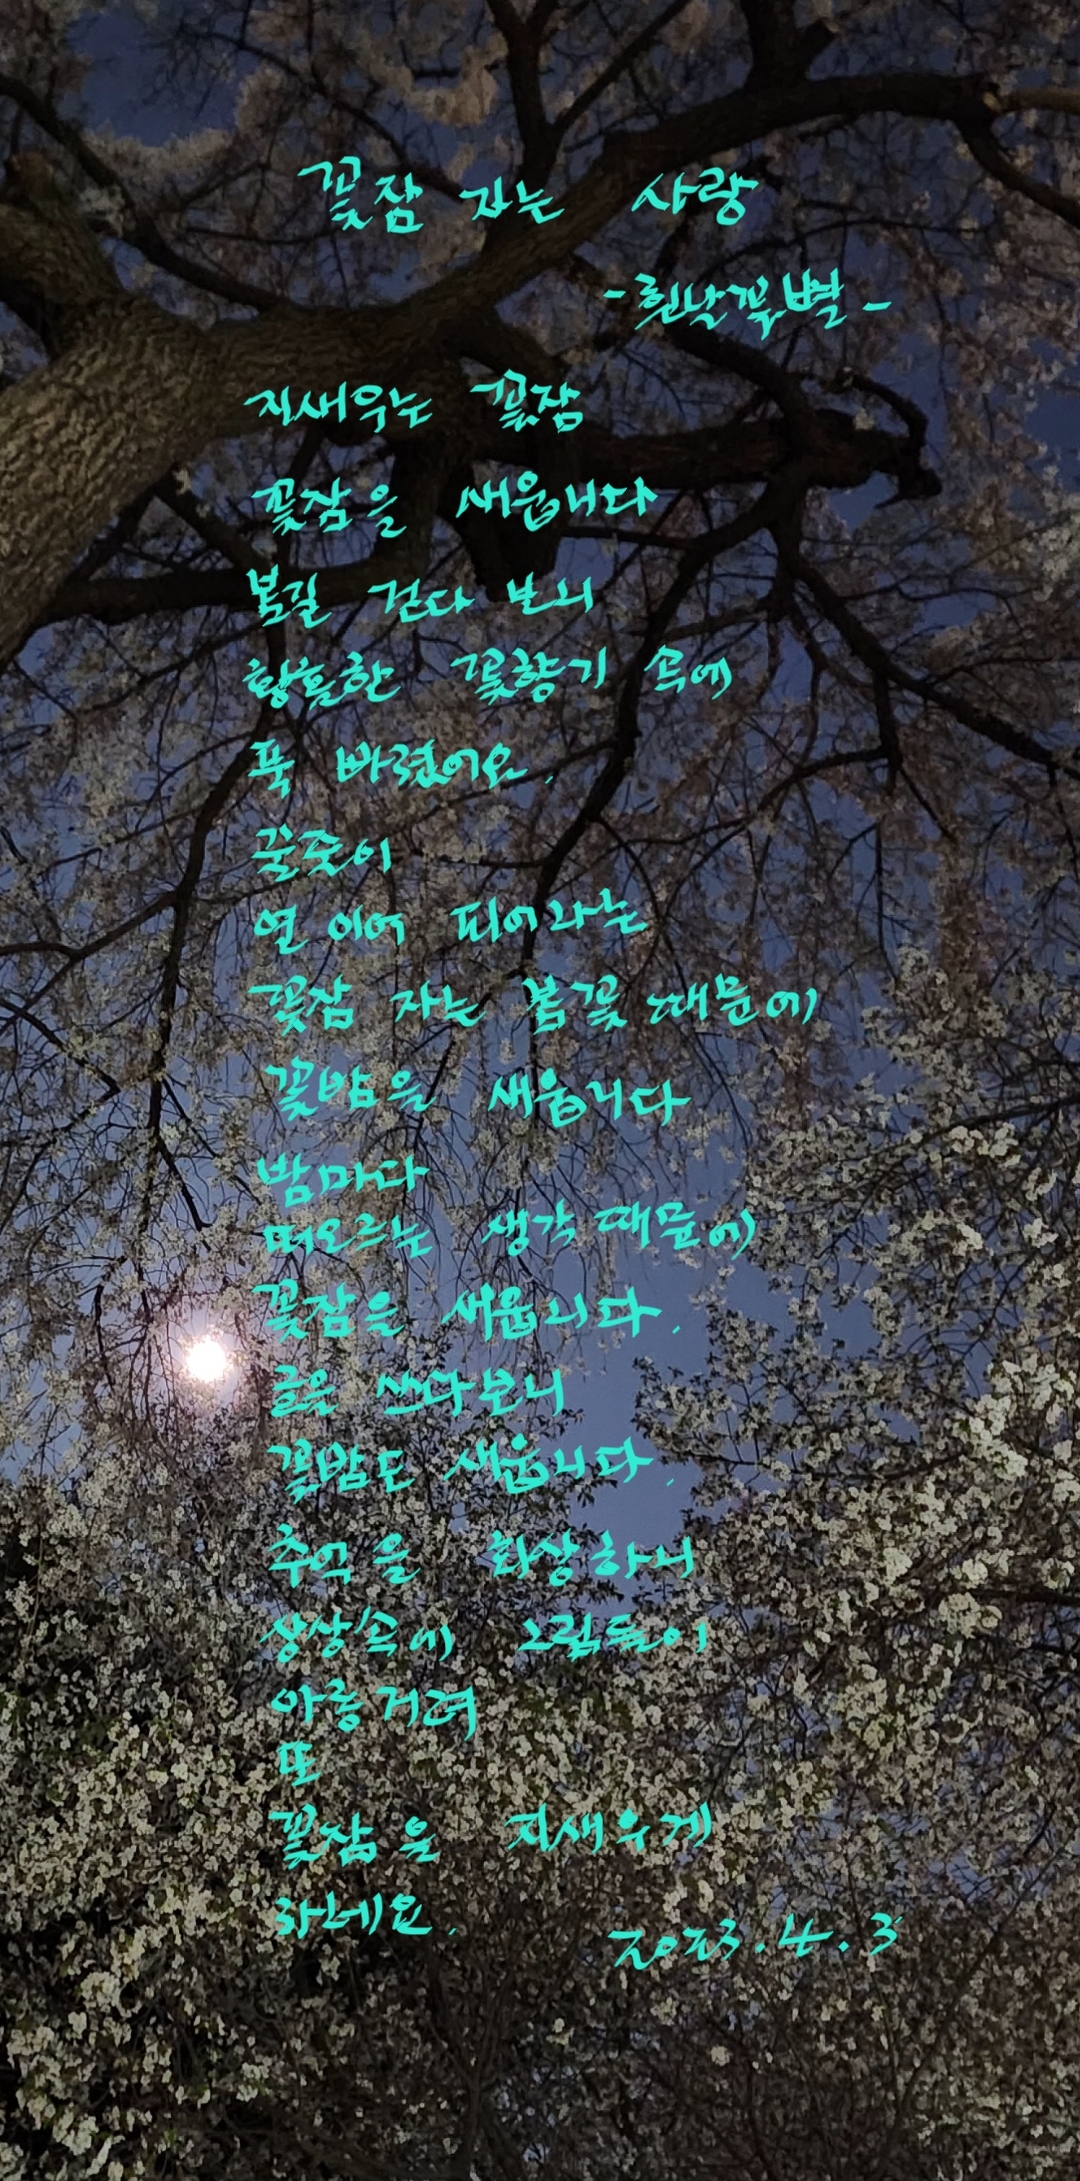 꽃잠 자는 사랑
-흰날꽃별-
지새우는 꽃잠
꽃잠을 새웁니다
봄길 걷다 보니
황홀한 꽃향기 속에
푹 빠졌어요.
꾸준이
연이어 피어나는
꽃잠 자는 봄꽃 때문에
꽃밤을 새웁니다
밤마다
떠오르는 생각 때문에
꽃잠을 새웁니다.
글을 쓰다보니
꽃밤도 새웁니다.
추억을 회상하니
상상속에 그림들이
아롱거려
또
꽃잠을 지새우게
하네요.
2023.4.3